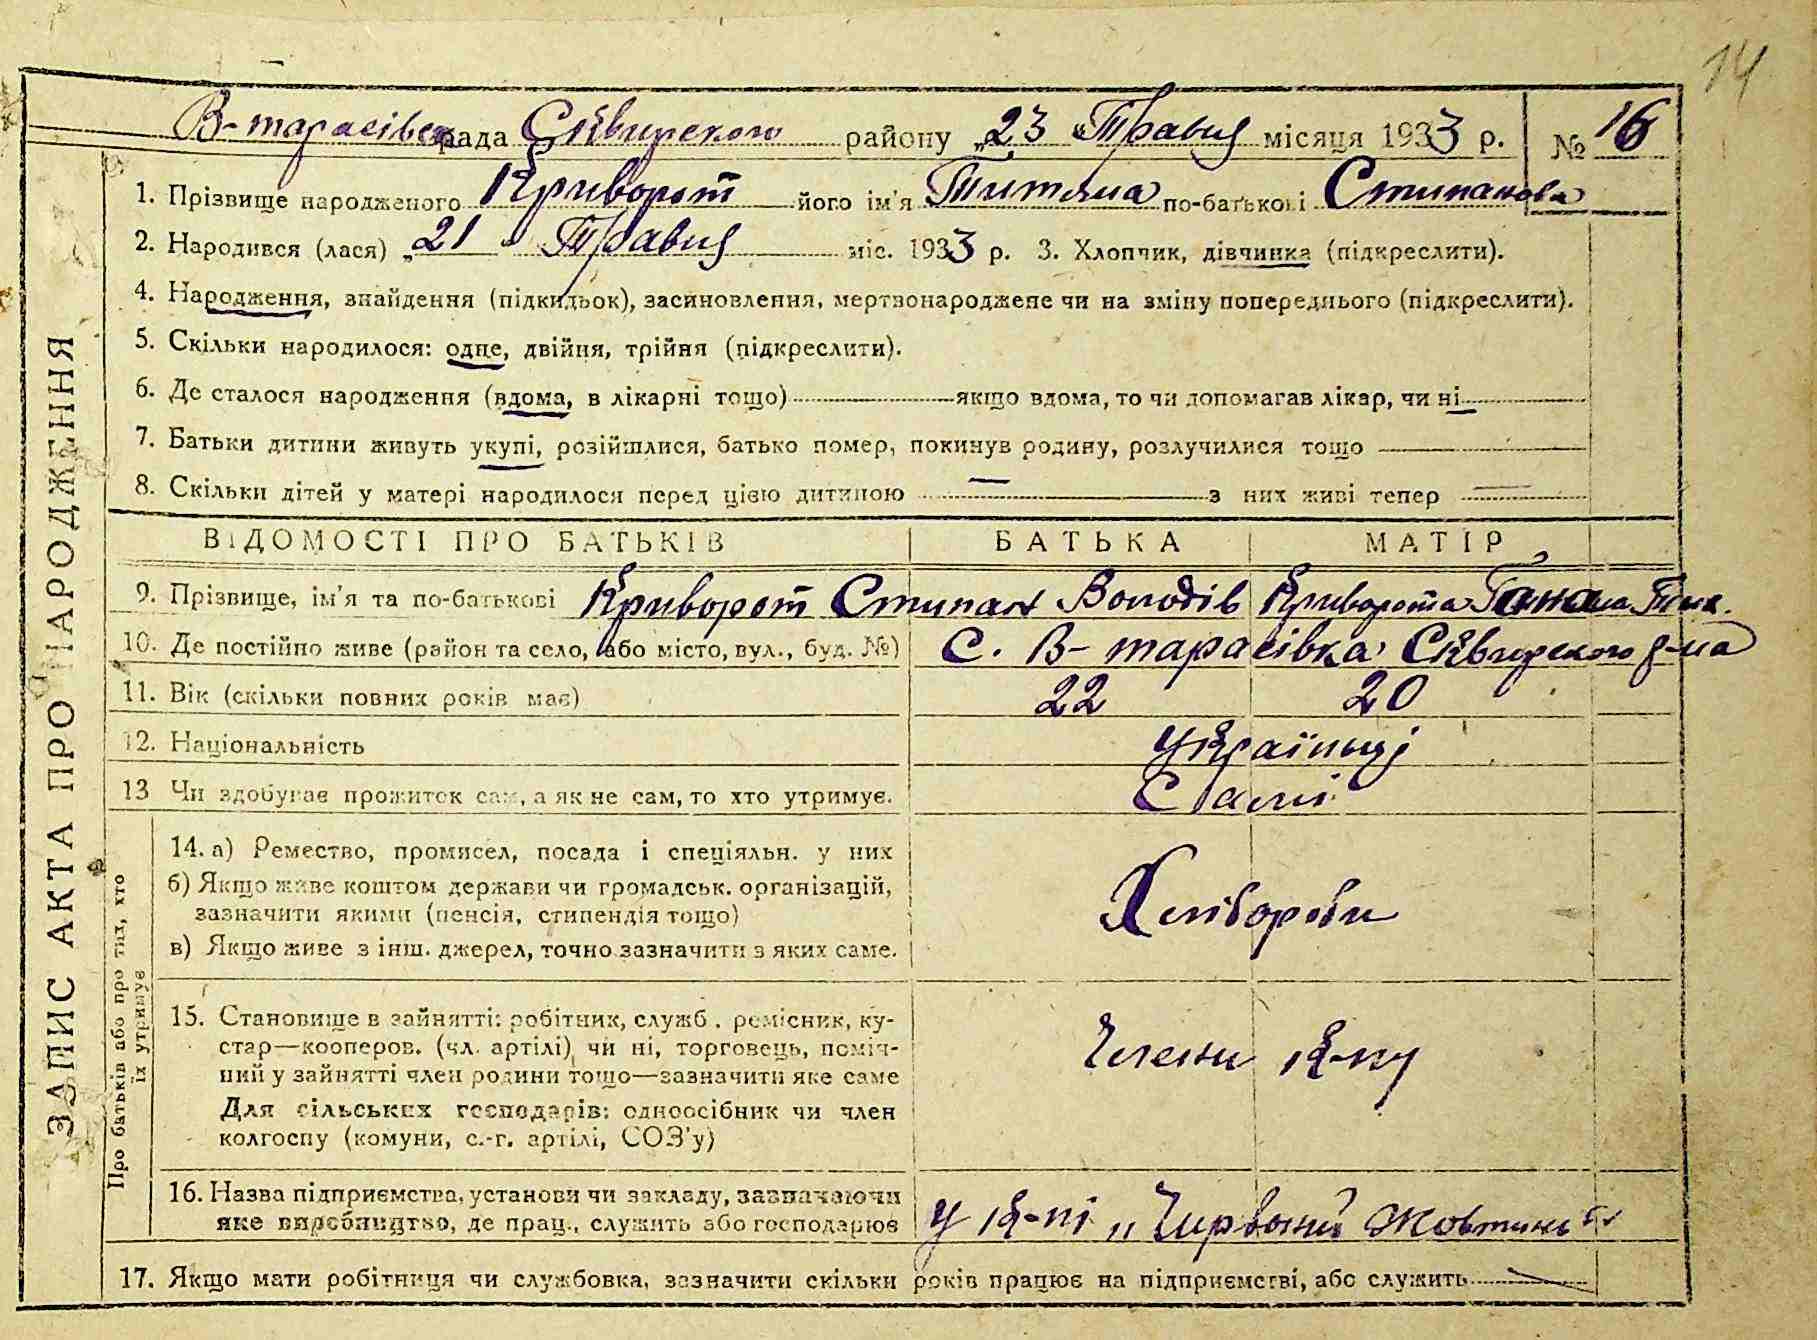 14
В-тарасівська рада Сквирского району „23 " Травня місяця 1933 р. № 16
1. Прізвище народженого Криворот його ім'я Титяна по-батькові Стипанова
2. Народився (лася) „21 " Травня міс. 1933 р. 3. Хлопчик, дівчинка (підкреслити).
4. Народження, знайдення (підкидьок), засиновлення, мертвонароджене чи на зміну попереднього (підкреслити).
5. Скільки народилося: одне, двійня, трійня (підкреслити).
6. Де сталося народження (вдома, в лікарні тощо) якщо вдома, то чи допомагав лікар, чи ні
7. Батьки дитини живуть укупі, розійшлися, батько помер, покинув родину, розлучилися тощо —
8. Скільки дітей у матері народилося перед цією дитиною — з них живі тепер —
ВІДОМОСТІ ПРО БАТЬКІВ БАТЬКА МАТІР
9. Прізвище, ім'я та по-батькові Криворот Стипан Володів Криворота Ганна
10. Де постійно живе (район та село, або місто, вул., буд. №) С. В-тарасівка Сквирского р-на
11. Вік (скільки повних років має) 22 20
12. Національність Українці
13 Чи здобуває прожиток сам, а як не сам, то хто утримує. Самі
14. а) Ремество, промисел, посада і спеціяльн. у них
б) Якщо живе коштом держави чи громадськ. організацій,
зазначити якими (пенсія, стипендія тощо)
Хлібороби
в) Якщо живе з інш. джерел, точно зазначити з яких саме.
15. Становище в зайнятті: робітник, служб., ремісник, ку-
стар—кооперов. (чл. артілі) чи ні, торговець, поміч-
ний у зайнятті член родини тощо—зазначити яке саме
Члени к-пу
Для сільських господарів: одноосібник чи член
колгоспу (комуни, с.-г. артілі, СОЗ'у)
16. Назва підприємства, установи чи закладу, зазначаючи
яке виробництво, де прац., служить або господарює У к-пі „Чирвоний Жовтинь"
17. Якщо мати робітниця чи службовка, зазначити скільки років працює на підприємстві, або служить —
ЗАПИС АКТА ПРО НАРОДЖЕННЯ
Про батьків або про тих, хто
їх утримує